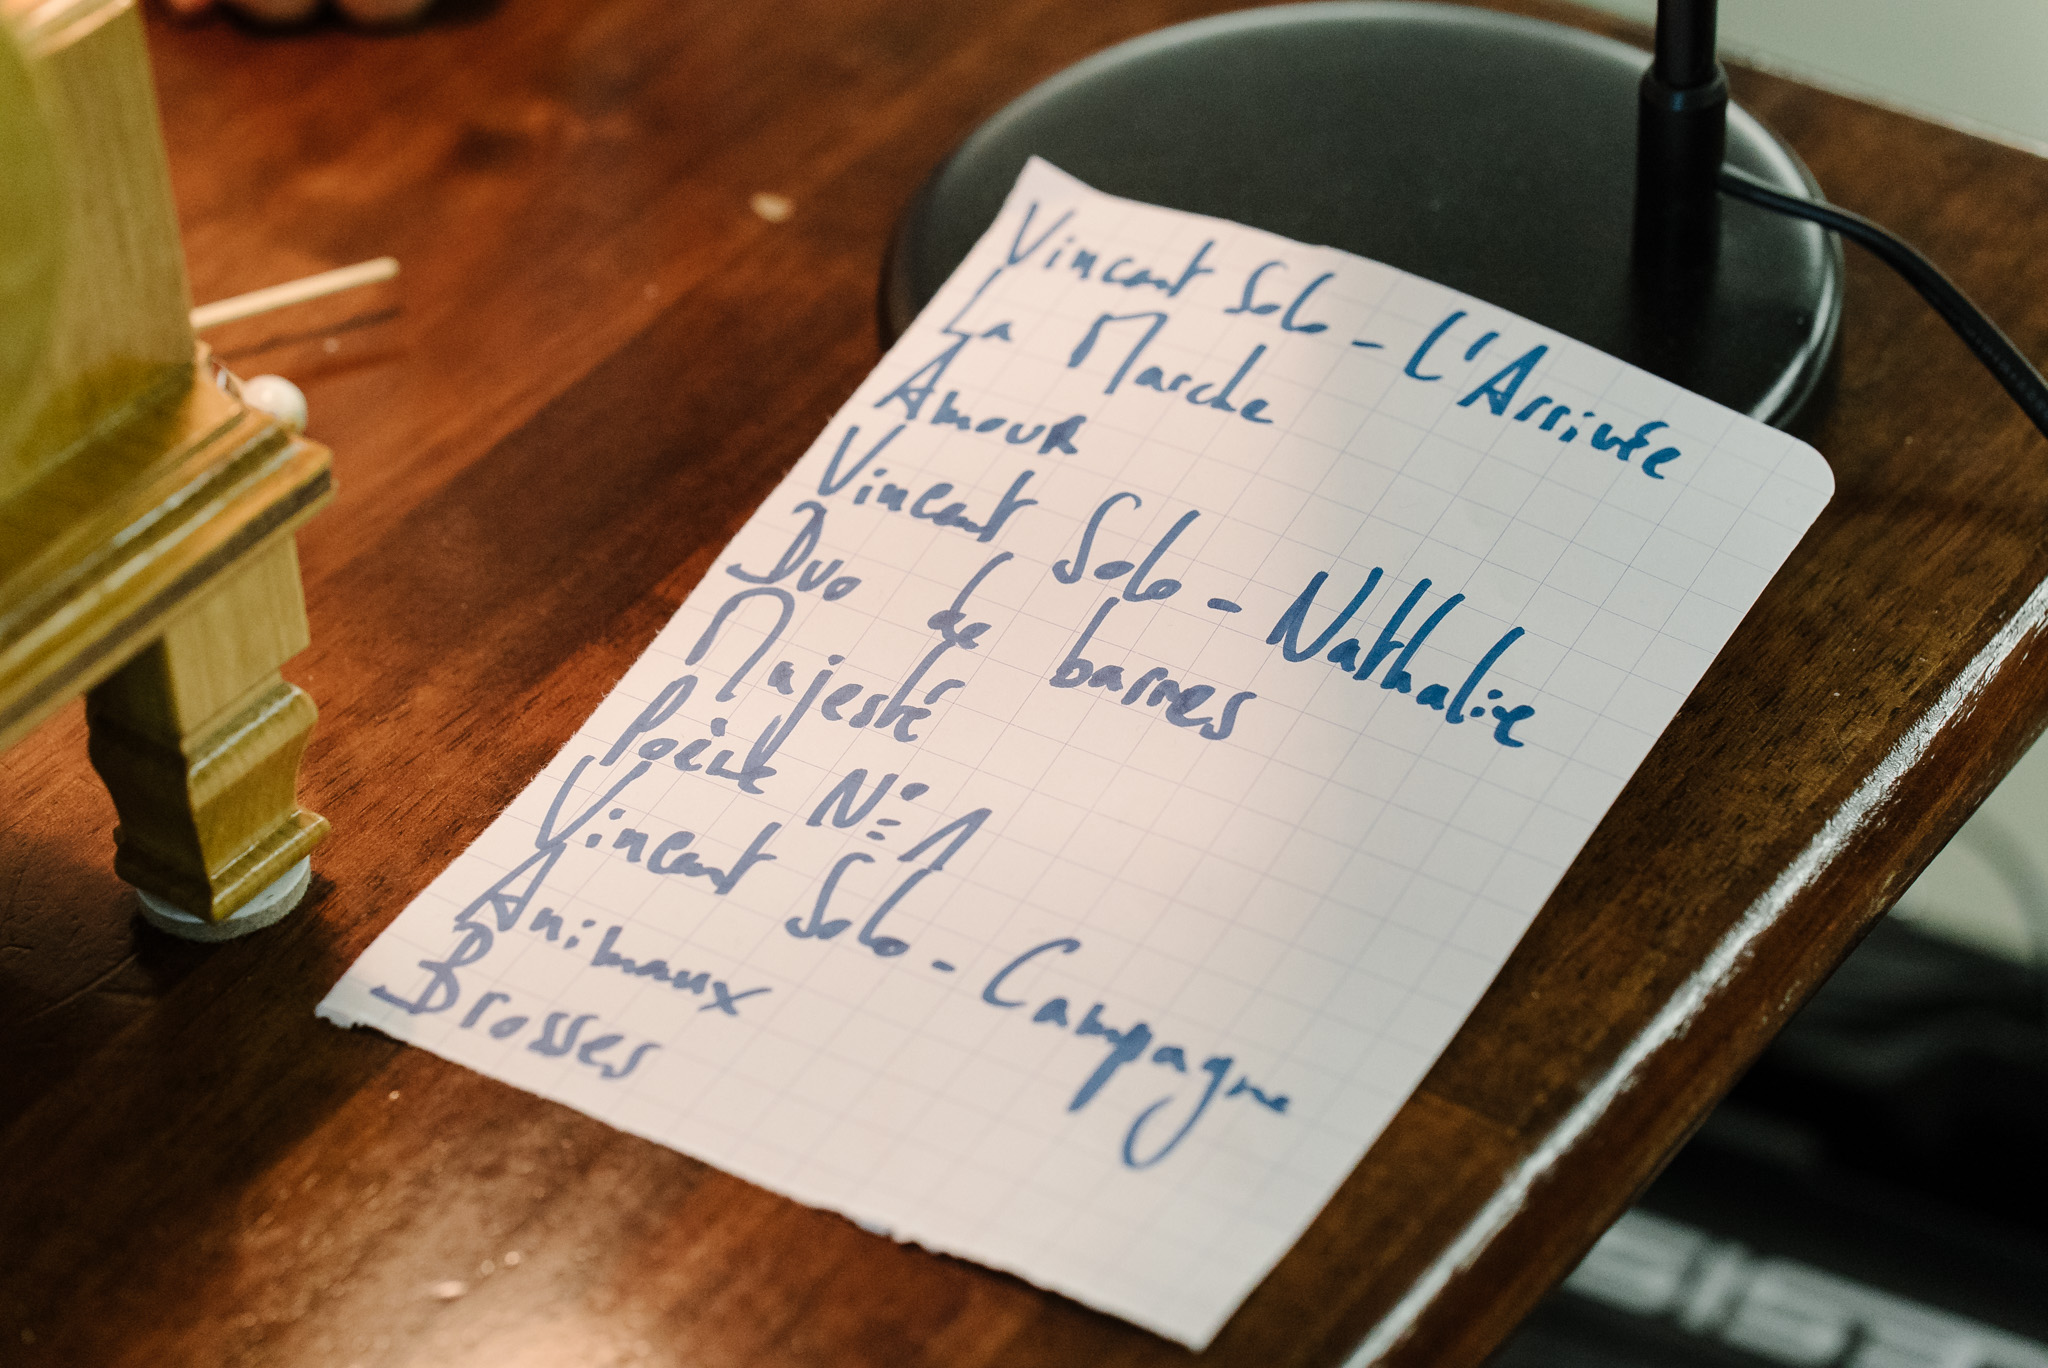 Vincent Solo - L'Arrivée
La Marche
Amour
Vincent Solo - Nathalie
Duo de barres
Majesté
Poème N° 1
Vincent Solo - Campagne
Animaux
Brosses